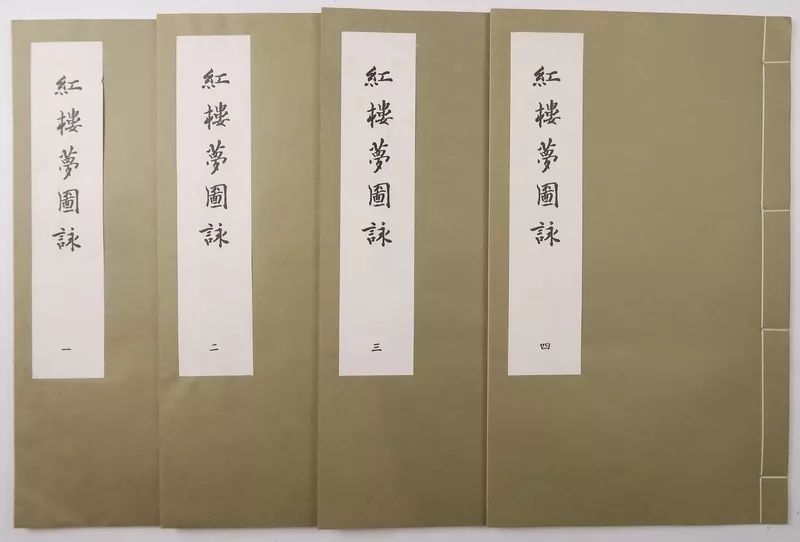 紅樓夢圖詠
一
紅樓夢圖詠
二
紅樓夢圖詠
三
紅樓夢圖詠
四